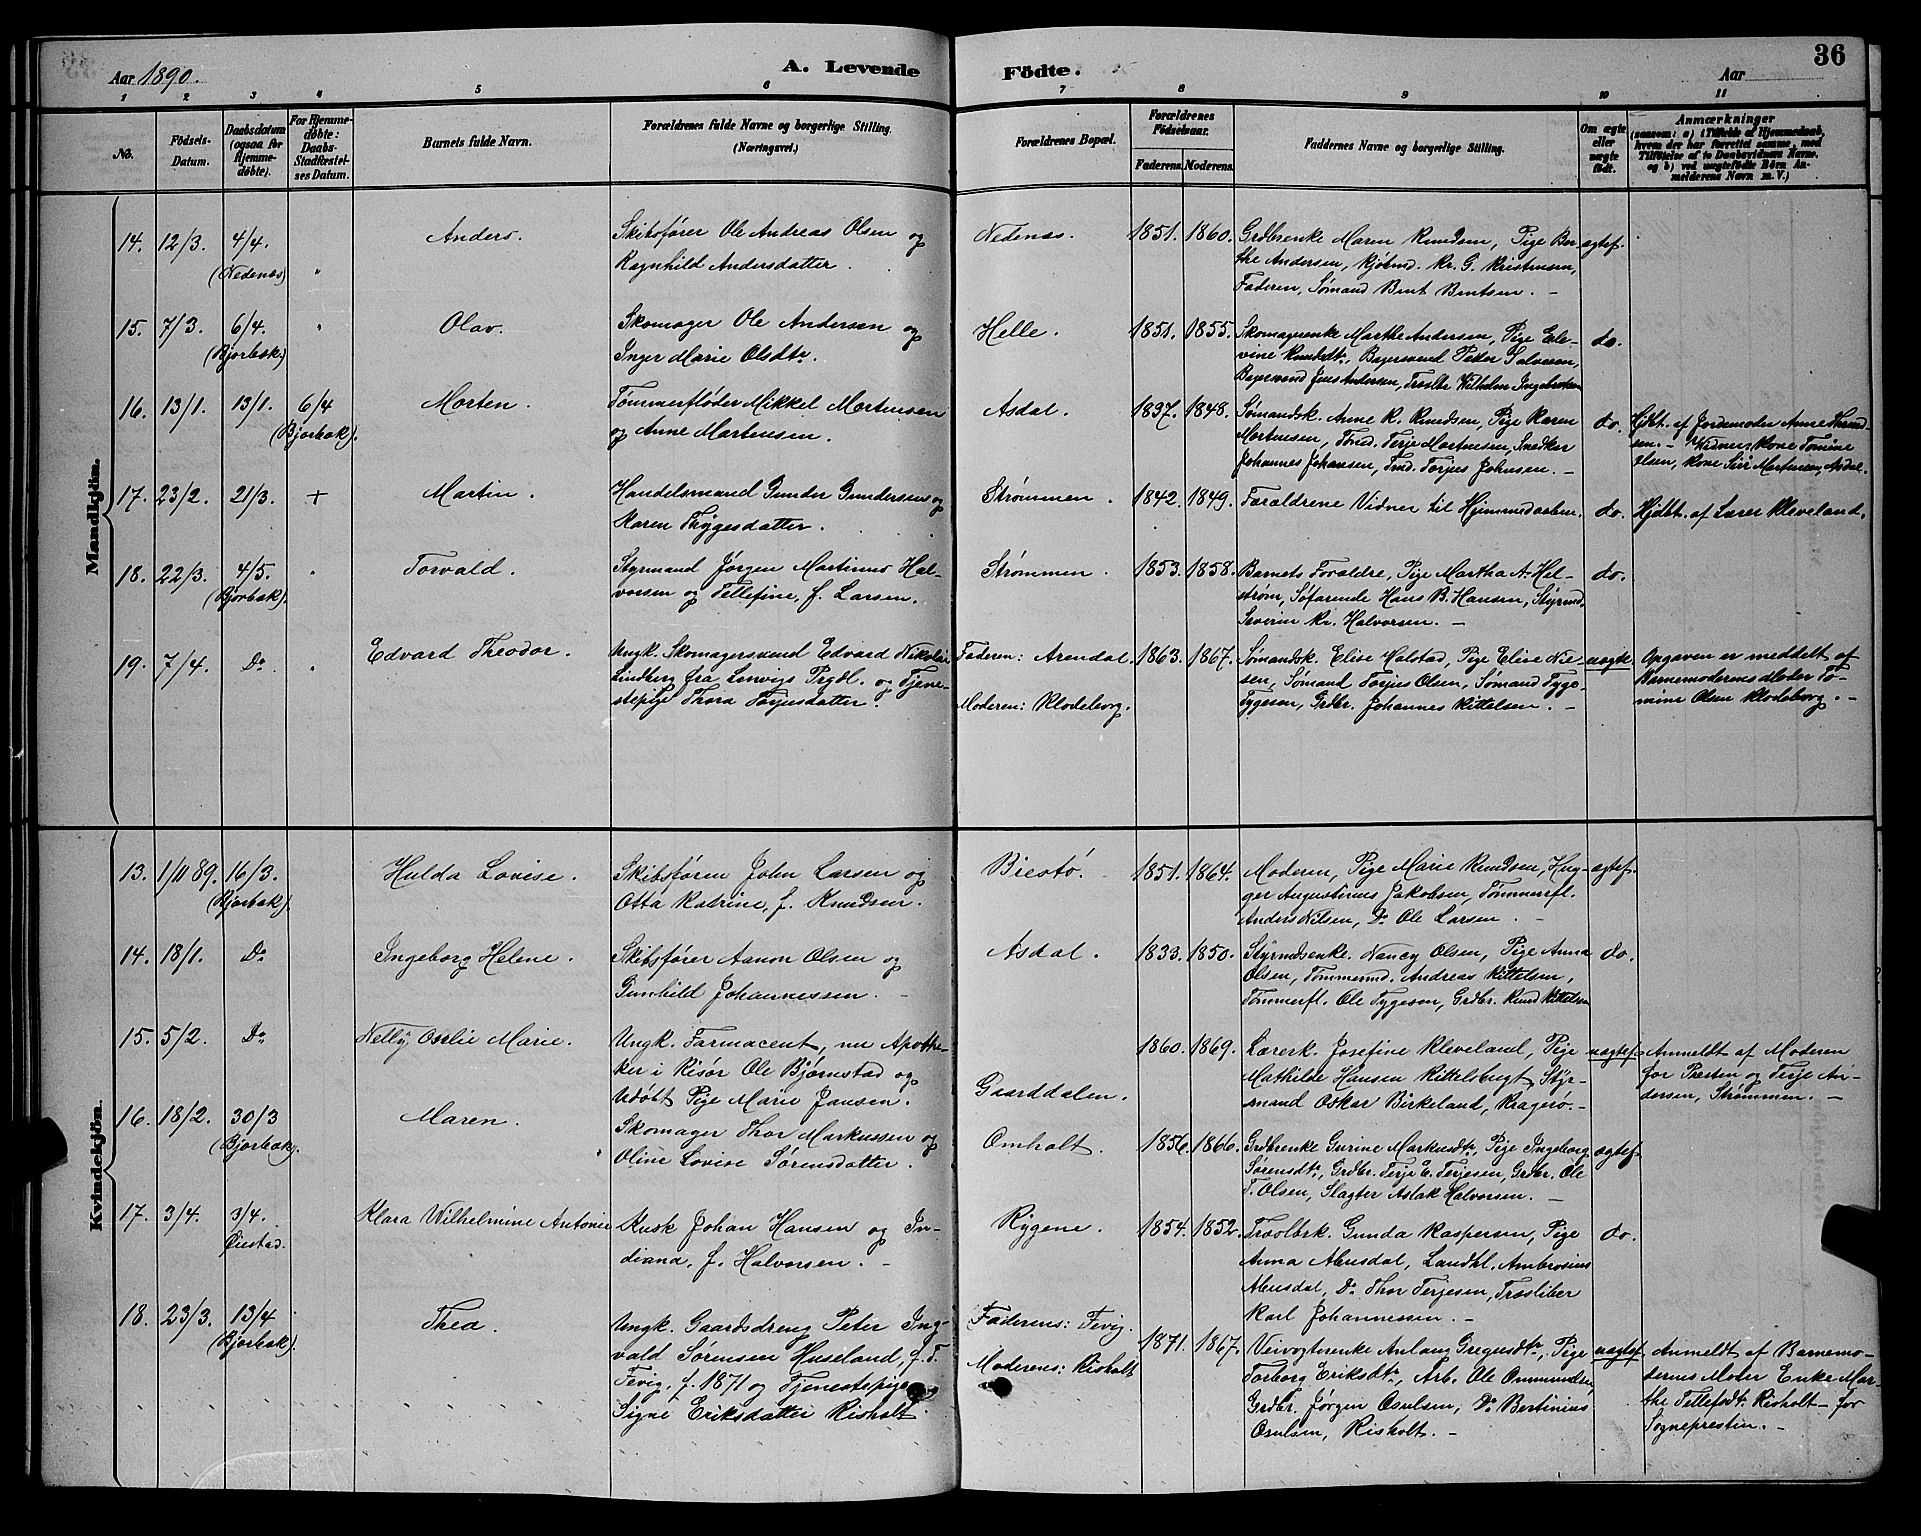 36
Aar 1890.
A. Levende Födte.
Aar
1 2 3 4 5 6 7 8 9 10 11
No.
Födsels-Datum.
Daabsdatum (ogsaa for Hjemme-døbte).
For Hjemme-døbte: Daabs-Stadfæstel-ses Datum.
Barnets fulde Navn.
Forældrenes fulde Navne og borgerlige Stilling. (Næringsvei.)
Forældrenes Bopæl.
Forældrenes Födselsaar.
Faderens. Moderens.
Faddernes Navne og borgerlige Stilling.
Om ægte eller uægte født.
Anmærkninger
(saasom: a) i Tilfælde af Hjemmedaab, hvem der har forrettet samme, med Tilföielse af to Daabsvidners Navne, og b) ved uægtefödte Börn An-melderens Navn m. V.)
Mandkjön.
14. 12/3. 4/4. (Nedenæs) " Anders. Skibsfører Ole Andreas Olsen og
Ragnhild Andersdatter.
Nedenæs. 1851. 1860. Grdbrenke Maren Knudsen, Pige Ber- ægtef.
the Andersen, Kjøbmd. Kr. G. Kristensen,
Faderen, Sømand Bent Bentsen. –
15. 7/3. 6/4. (Bjorbæk) " Olav. Skomager Ole Andersen og
Inger Marie Olsdtr.
Helle. 1851. 1855. Skomagerenke Marthe Andersen, Pige Ele- do.
vine Knudsdtr, Bagersvend Peder Salvesen,
Bagersvend Jens Andersen, Træslbr Wilhelm Ingebretsen
16. 13/1. 13/1. 6/4 (Bjorbæk). Morten. Tømmerfløder Mikkel Mortensen
og Anne Martensen.
Asdal. 1837. 1848. Sømandsk. Anne K. Knudsen, Pige Karen do.
Mortensen, Tømd. Terje Mortensen, Snedker
Johannes Johansen, Tmd. Torjus Johnsen. –
Hjdbt. af Jordemoder Anne Thrond-
sen. – Vidner, Kone Tomine
Olsen, Kone Siri Mortensen, Asdal.
17. 23/2. 21/3. + Martin. Handelsmand Gunder Gundersen og
Karen Thygesdatter.
Strømmen. 1842. 1849. Forældrene Vidner til Hjemmedaaben. do. Hjdbt. af Lærer Kleveland.
18. 22/3. 4/5. (Bjorbæk). " Torvald. Styrmand Jørgen Martinus Hal-
vorsen og Tellefine, f. Larsen.
Strømmen. 1853. 1858. Barnets Forældre, Pige Martha A. Hel- do.
strøm, Søfarende Hans B. Hansen, Styrmd.
Severin Kr. Halvorsen. –
19. 7/4. Do " Edvard Theodor. Ungk. Skomagersvend Edvard Nikolai
Lindberg fra Lenvigs Prgdl. og Tjene-
stepige Thora Torjusdatter.
Faderen: Arendal. 1863. 1867.
Moderen: Klodeborg.
Sømandsk. Elise Halstad, Pige Elise Niel- uægte.
sen, Sømand Torjus Olsen, Sømand Tyge
Tygesen, Grdbr. Johannes Kittelsen. –
Opgaven er meddelt af
Barnemoderens Moder To-
mine Olsen Klodeborg. –
Kvindekjön.
13. 1/11 89. 16/3. (Bjorbæk). Hulda Lovise. Skibsfører John Larsen og
Otta Katrine, f. Knudsen.
Biestø. 1851. 1864. Moderen, Pige Marie Knudsen, Hug- ægtef.
ger Augustinus Jakobsen, Tømmerfl.
Anders Nilsen, Do Ole Larsen. –
14. 18/1. Do Ingeborg Helene. Skibsfører Aanon Olsen og
Gunhild Johannessen. –
Asdal. 1833. 1850. Styrmdsenke. Nancy Olsen, Pige Anna do.
Olsen, Tømmermd. Andreas Kittelsen,
Tømmerfl. Ole Tygesen, Grdbr. Knud Kittelsen
15. 5/2. Do Nelly Marie. Ungk. Farmaceut, nu Apothe-
ker i Risør Ole Bjørnstad og
Udøbt Pige Marie Jansen.
Gaarddalen. 1860. 1869. Lærerk. Josefine Kleveland, Pige uægtef.
Mathilde Hansen Kittelsbugt, Styr-
mand Oskar Birkeland, Kragerø. –
Anmeldt af Moderen
for Presten og Terje An-
dersen, Strømmen. –
16. 18/2. 30/3 (Bjorbæk). Maren. Skomager Thor Markussen og
Oline Lovise Sørensdatter.
Omholt. 1856. 1866. Grdbrenke Gurine Markusdtr, Pige Ingeborg ægtef.
Sørensdtr, Grdbr. Terje E. Terjesen, Grdbr. Ole
T. Olsen, Slagter Aslak Halvorsen. –
17. 3/4. 3/4. Øiestad. Klara Wilhelmine Antonie Kusk Johan Hansen og In-
diana, f. Halvorsen. –
Rygene. 1854. 1852. Træslbrk. Gunda Kaspersen, Pige do.
Anna Abusdal, Landhl. Ambrosius
Abusdal, Do Thor Terjesen, Træsliber
Karl Johannessen. –
18. 23/3. 13/4 (Bjorbæk). Thea. Ungk. Gaardsdreng Peter Ing-
vald Sørensen Huseland, f. T.
Fevig, f. 1871 og Tjenestepige
Signe Eriksdatter Risholt.
Faderens: Fevig. 1871. 1867.
Moderens: Risholt
Veivogterenke Anlaug Gregusdtr, Pige uægtef.
Torborg Eriksdtr, Arb. Ole Ommundsen,
Grdbr. Jørgen Osulsen, Do Bertinius
Osulsen, Risholt. –
Anmeldt af Barnemo-
derens Moder Enke Mar-
the Tellefsdtr. Risholt – for
Sognepresten. –